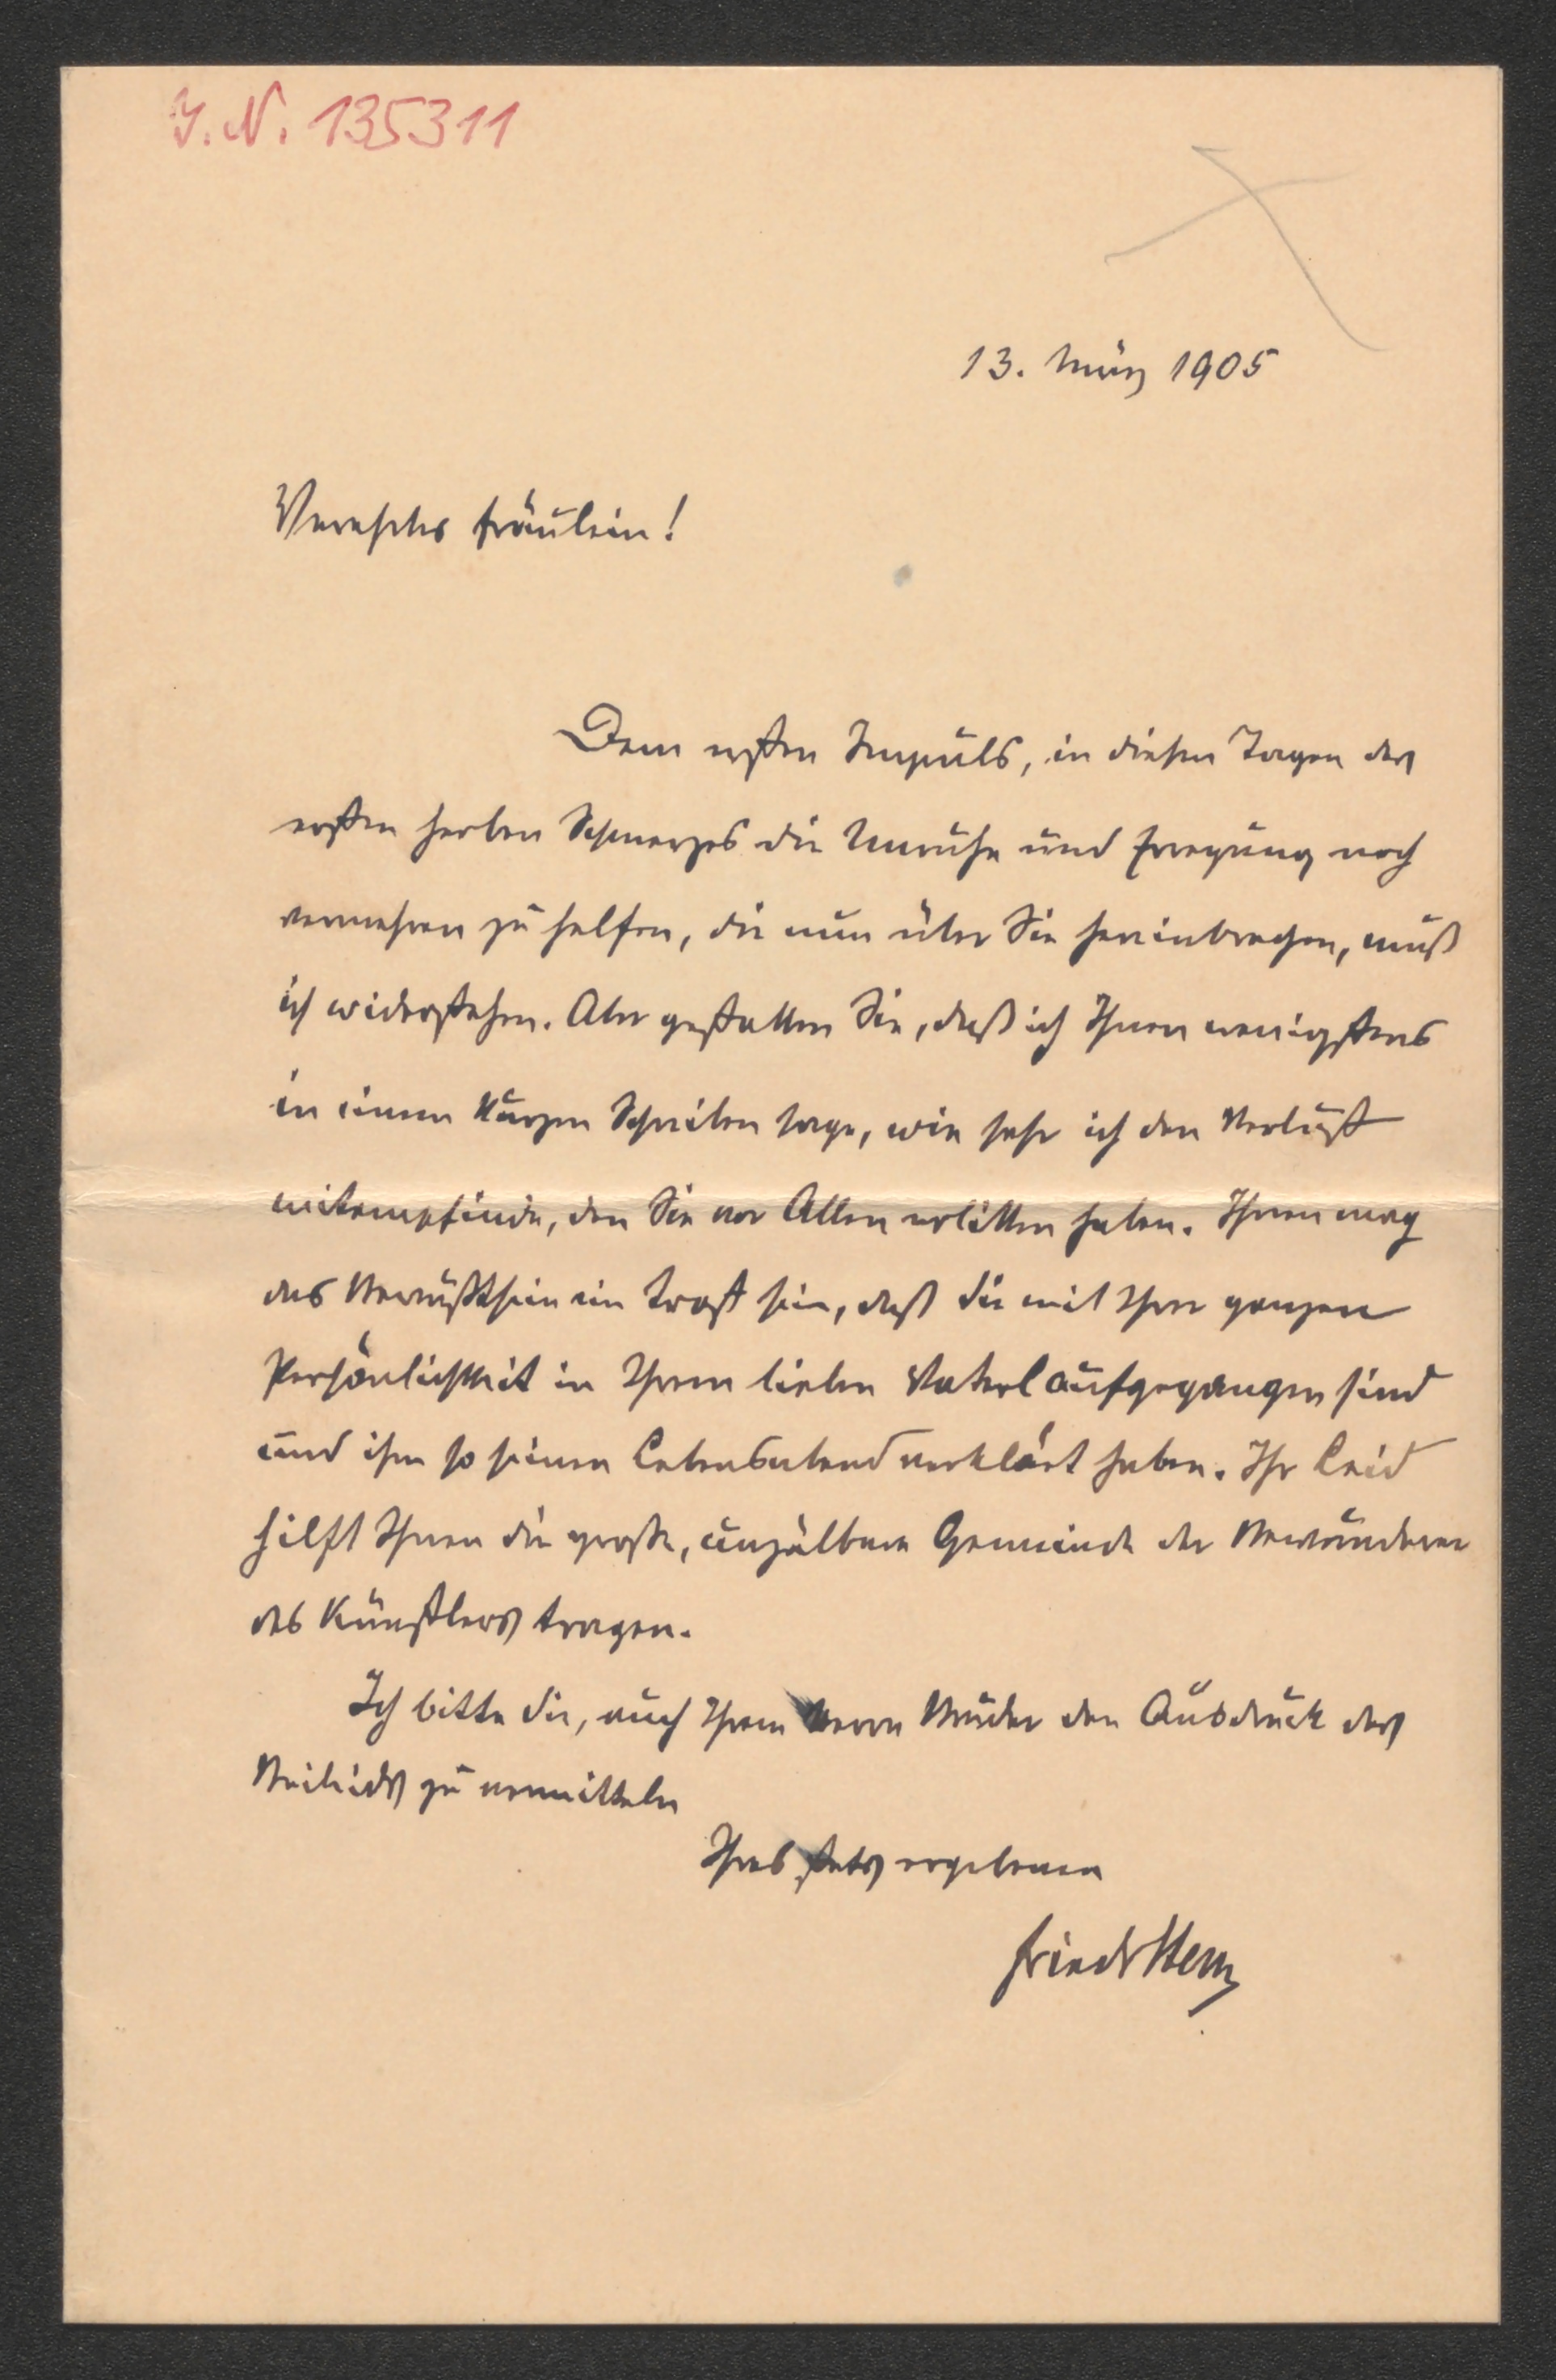 J. N. 135311
13. März 1905
Verehrtes Fräulein!
Dem ersten Impuls, in diesen Tagen des
ersten herben Schmerzes die Unruhe und Erregung noch
vermehren zu helfen, die nun über Sie hereinbrechen, muß
ich widerstehen. Aber gestatten Sie, daß ich Ihnen wenigstens
in einem kurzen Schreiben sage, wie sehr ich den Verlust
mitempfinde, den Sie vor Allen erlitten haben. Ihnen mag
das Bewußtsein ein Trost sein, daß Sie mit Ihrer ganzen
Persönlichkeit in Ihrem lieben Vaterl aufgegangen sind
und ihm so seinen Lebensabend verklärt haben. Ihr Leid
hilft Ihnen die große, unzälbare Gemeinde der Bewunderer
des Künstlers tragen.
Ich bitte Sie, auch Ihrem Herrn Bruder den Ausdruck des
Beileids zu vermitteln
Ihres stets ergebenen
Friedr Stern